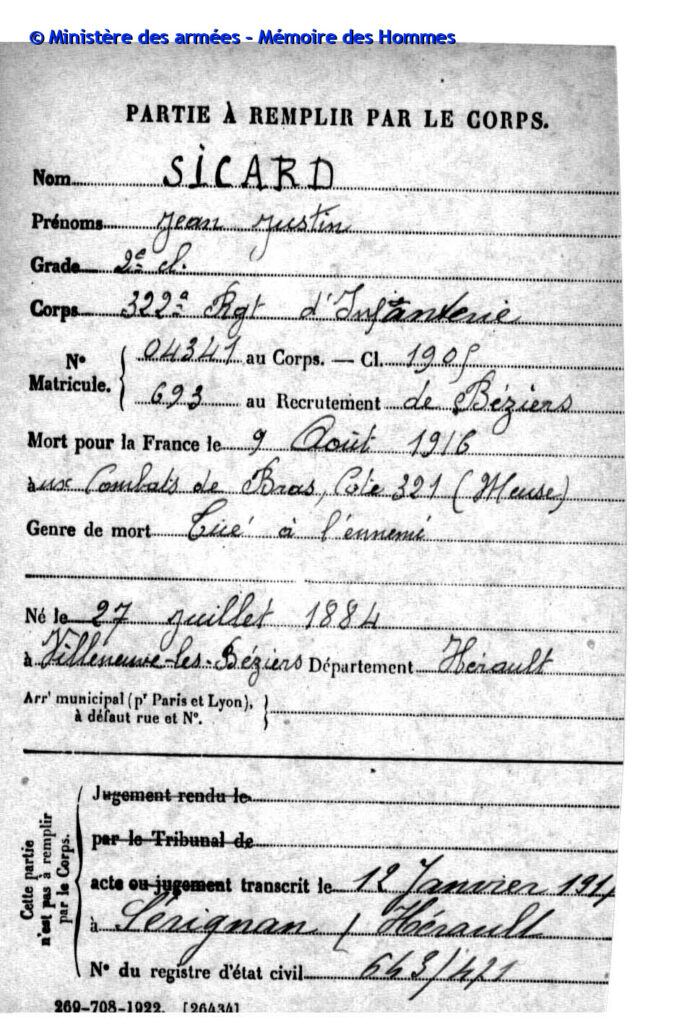 © Ministère des armées - Mémoire des Hommes
PARTIE À REMPLIR PAR LE CORPS.
Nom SICARD
Prénoms Jean Justin
Grade 2e cl.
Corps 322e Rgt d'Infanterie
N° Matricule. { 04341 au Corps. — Cl. 1905
693 au Recrutement de Béziers
Mort pour la France le 9 Août 1916
aux Combats de Bras, Côte 321 (Meuse)
Genre de mort Tué à l'ennemi
Né le 27 juillet 1884
à Villeneuve-les-Béziers Département Hérault
Arrt municipal (pr Paris et Lyon),
à défaut rue et N°.
Cette partie n'est pas à remplir par le Corps.
Jugement rendu le
par le Tribunal de
acte ou jugement transcrit le 12 Janvier
à Sérignan (Hérault
N° du registre d'état civil 643/421
269-708-1922. [26434]